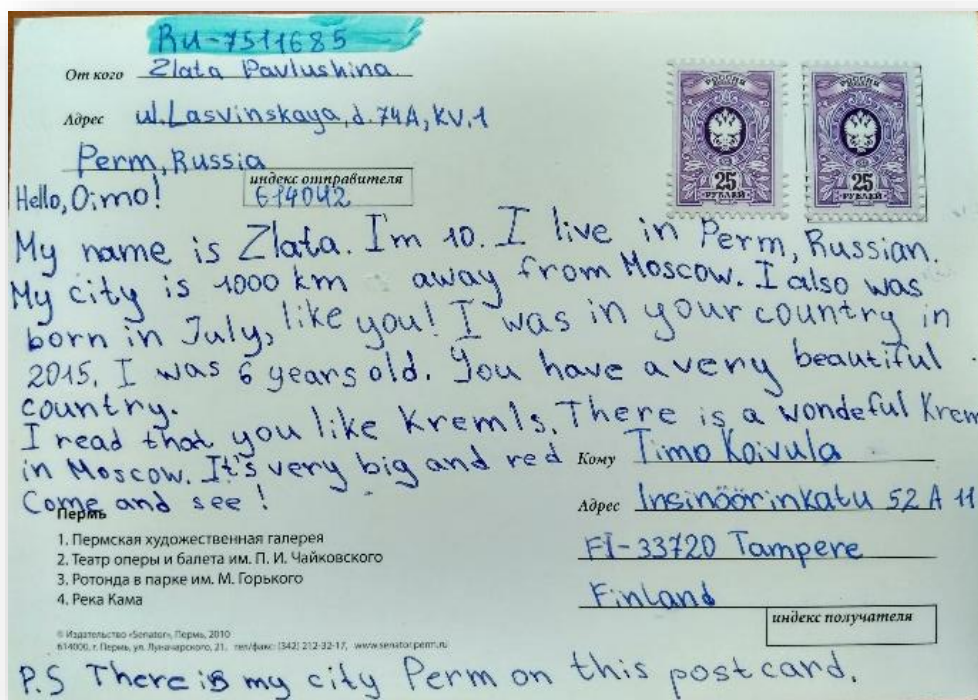 RU-7511685
От кого Zlata Pavlushina
Адрес ul. Lasvinskaya, d. 74A, KV. 1
Perm, Russia
индекс отправителя
614042
РОССИЯ
25
РУБЛЕЙ
РОССИЯ
25
РУБЛЕЙ
Hello, Oimo!
My name is Zlata. I'm 10. I live in Perm, Russian.
My city is 1000 km away from Moscow. I also was
born in July, like you! I was in your country in
2015. I was 6 years old. You have a very beautiful
country.
I read that you like Kremls. There is a wondeful Krem
in Moscow. It's very big and red
Come and see!
Кому Timo Koivula
Адрес Insinöörinkatu 52 A 11
FI-33720 Tampere
Finland
индекс получателя
Пермь
1. Пермская художественная галерея
2. Театр оперы и балета им. П. И. Чайковского
3. Ротонда в парке им. М. Горького
4. Река Кама
© Издательство «Senator», Пермь, 2010
614000, г. Пермь, ул. Луначарского, 21, тел/факс: (342) 212-32-17, www.senator.perm.ru
P.S There is my city Perm on this postcard.